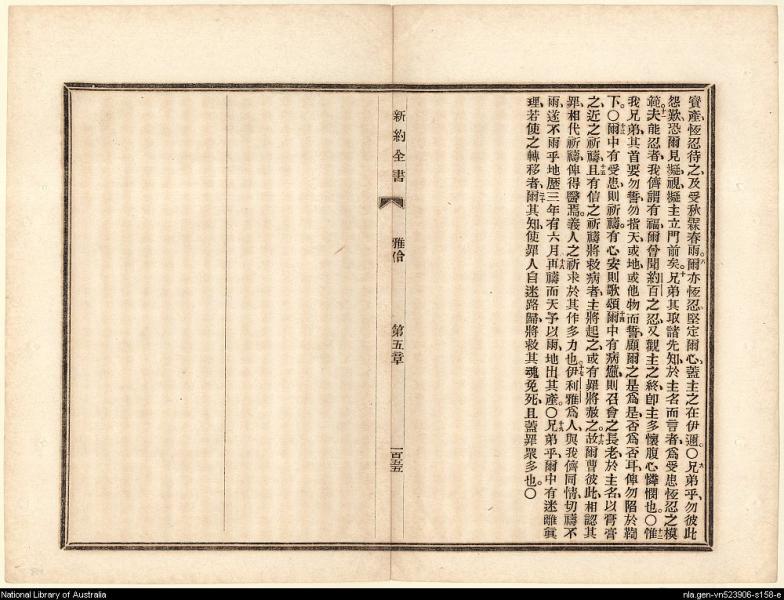 寶產恆忍待之及受秋霖春雨爾亦恆忍堅定爾心蓋主之在伊邇○兄弟乎勿彼此
怨歎恐爾見擬視擬主立門前矣兄弟其取諸先知於主名而言者爲受患恆忍之模
範夫能忍者我儕謂有福爾曾聞約百之忍又觀主之終卽主多懷腹心憐憫也○惟
我兄弟其首要勿誓勿指天或地或他物而誓願爾之是爲是否爲否耳俾勿陷於鞫
下○爾中有受患則祈禱有心安則歌頌爾中有病尪則召會之長老於主名以膏膏
之近之祈禱且有信之祈禱將救病者主將起之或有罪將赦之故爾曹彼此相認其
罪相代祈禱俾得醫焉義人之祈求於其作多力也伊利雅爲人與我儕同情切禱不
雨遂不雨乎地歷三年有六月再禱而天予以雨地出其產○兄弟乎爾中有迷離眞
理若使之轉移者爾其知使罪人自迷路歸將救其魂免死且蓋罪眾多也○
新約全書
雅佮
第五章
一百五五
National Library of Australia
nla.gen-vn523906-s158-e